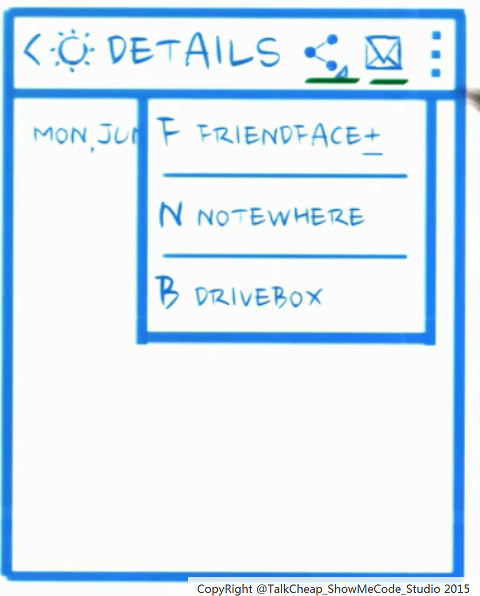 < DETAILS
MON, JUN
F FRIENDFACE+
N NOTEWHERE
B DRIVEBOX
CopyRight @TalkCheap_ShowMeCode_Studio 2015